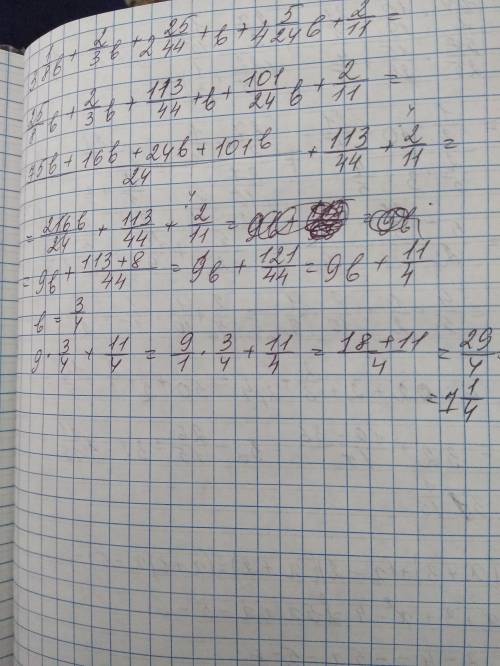 3 1/8 b + 2/3 b + 2 25/44 + b + 4 5/24 b + 2/11 =
25/8 b + 2/3 b + 113/44 + b + 101/24 b + 2/11 =
(35b + 16b + 24b + 101b)/24 + 113/44 + 2/11 =
= 216b/24 + 113/44 + 2/11 =
= 9b + (113+8)/44 = 9b + 121/44 = 9b + 11/4
b = 3/4
9 · 3/4 + 11/4 = 9/1 · 3/4 + 11/4 = (18+11)/4 = 29/4 =
= 7 1/4